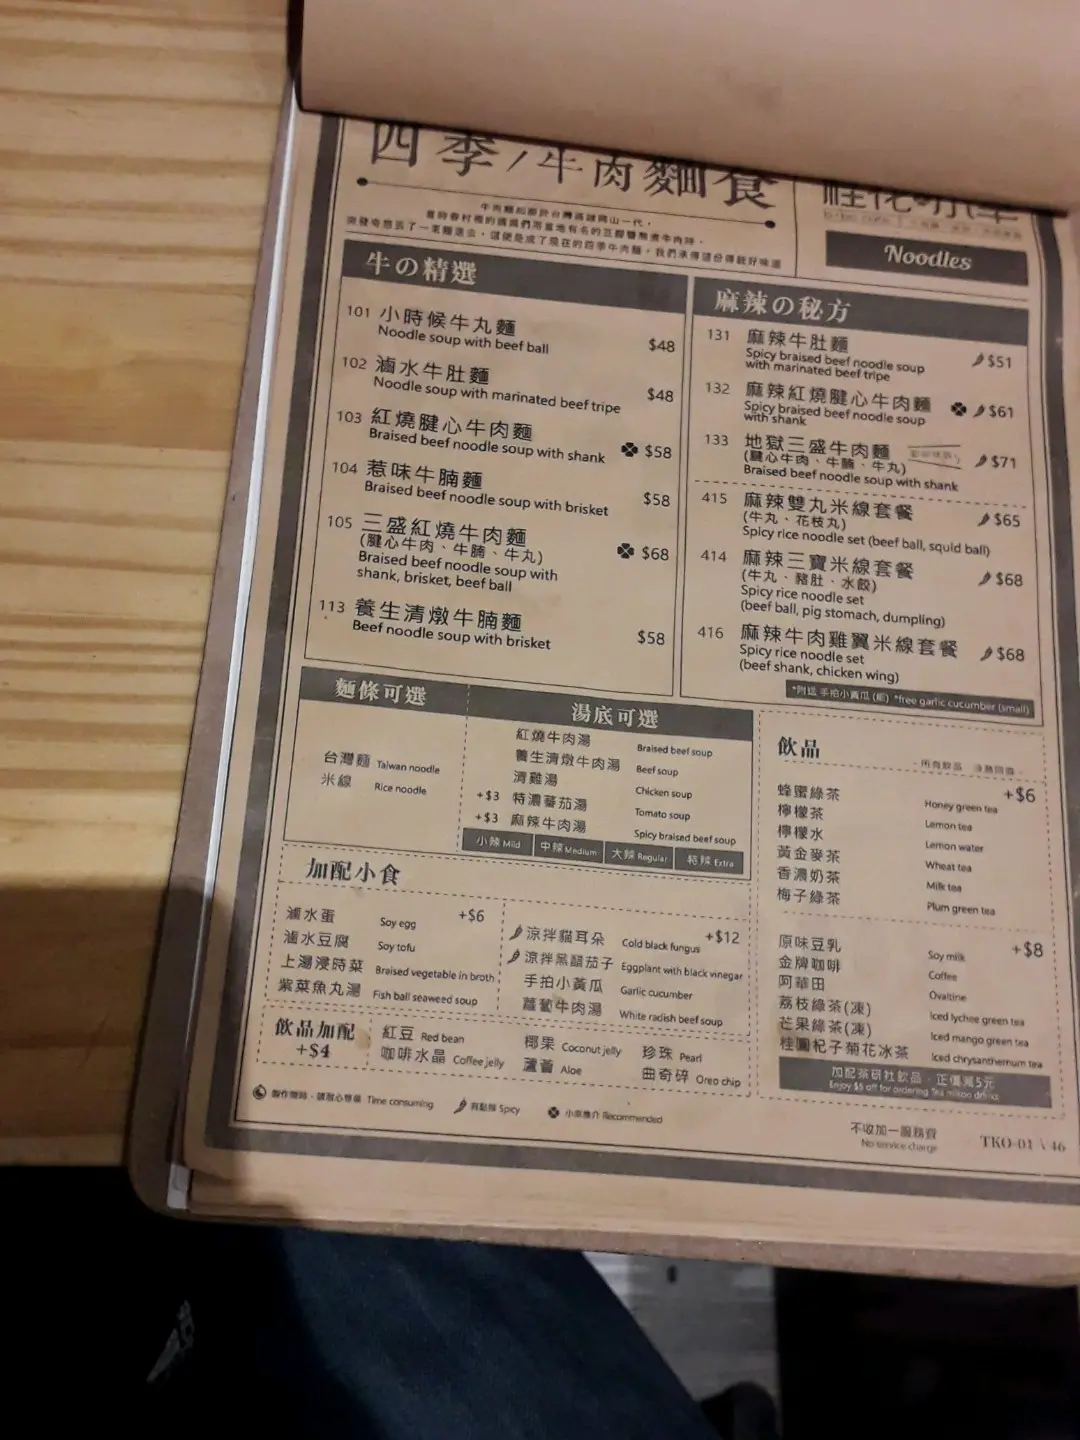 四季/牛肉麵食
Noodles
牛の精選
101 小時候牛丸麵 $48
Noodle soup with beef ball
102 滷水牛肚麵 $48
Noodle soup with marinated beef tripe
103 紅燒腱心牛肉麵 $58
Braised beef noodle soup with shank
104 惹味牛腩麵 $58
Braised beef noodle soup with brisket
105 三盛紅燒牛肉麵 $68
(腱心牛肉、牛腩、牛丸)
Braised beef noodle soup with
shank, brisket, beef ball
113 養生清燉牛腩麵 $58
Beef noodle soup with brisket
麻辣の秘方
131 麻辣牛肚麵 $51
Spicy braised beef noodle soup
with marinated beef tripe
132 麻辣紅燒腱心牛肉麵 $61
Spicy braised beef noodle soup
with shank
133 地獄三盛牛肉麵 $71
(腱心牛肉、牛腩、牛丸)
Braised beef noodle soup with shank
415 麻辣雙丸米線套餐 $65
(牛丸、花枝丸)
Spicy rice noodle set (beef ball, squid ball)
414 麻辣三寶米線套餐 $68
(牛丸、豬肚、水餃)
Spicy rice noodle set
(beef ball, pig stomach, dumpling)
416 麻辣牛肉雞翼米線套餐 $68
Spicy rice noodle set
(beef shank, chicken wing)
*附送 手拍小青瓜 (細) *free garlic cucumber (small)
麵條可選
台灣麵 Taiwan noodle
米線 Rice noodle
湯底可選
紅燒牛肉湯 Braised beef soup
養生清燉牛肉湯 Beef soup
清雞湯 Chicken soup
+$3 特濃蕃茄湯 Tomato soup
+$3 麻辣牛肉湯 Spicy braised beef soup
小辣 Mild 中辣 Medium 大辣 Regular 特辣 Extra
飲品
+$6
蜂蜜綠茶 Honey green tea
檸檬茶 Lemon tea
檸檬水 Lemon water
黃金麥茶 Wheat tea
香濃奶茶 Milk tea
梅子綠茶 Plum green tea
+$8
原味豆乳 Soy milk
金牌咖啡 Coffee
阿華田 Ovaltine
荔枝綠茶(凍) Iced lychee green tea
芒果綠茶(凍) Iced mango green tea
桂圓杞子菊花冰茶 Iced chrysanthemum tea
加配茶研社飲品，正價減5元
Enjoy $5 off for ordering Tea drinks
加配小食
+$6
滷水蛋 Soy egg
滷水豆腐 Soy tofu
上湯浸時菜 Braised vegetable in broth
紫菜魚丸湯 Fish ball seaweed soup
+$12
涼拌貓耳朵 Cold black fungus
涼拌黑醋茄子 Eggplant with black vinegar
手拍小黃瓜 Garlic cucumber
蘿蔔牛肉湯 White radish beef soup
飲品加配
+$4
紅豆 Red bean
咖啡水晶 Coffee jelly
椰果 Coconut jelly
蘆薈 Aloe
珍珠 Pearl
曲奇碎 Oreo chip
製作需時，請耐心等候 Time consuming 有點辣 Spicy 小店推介 Recommended
不收加一服務費
No service charge
TKO-01 \ 46